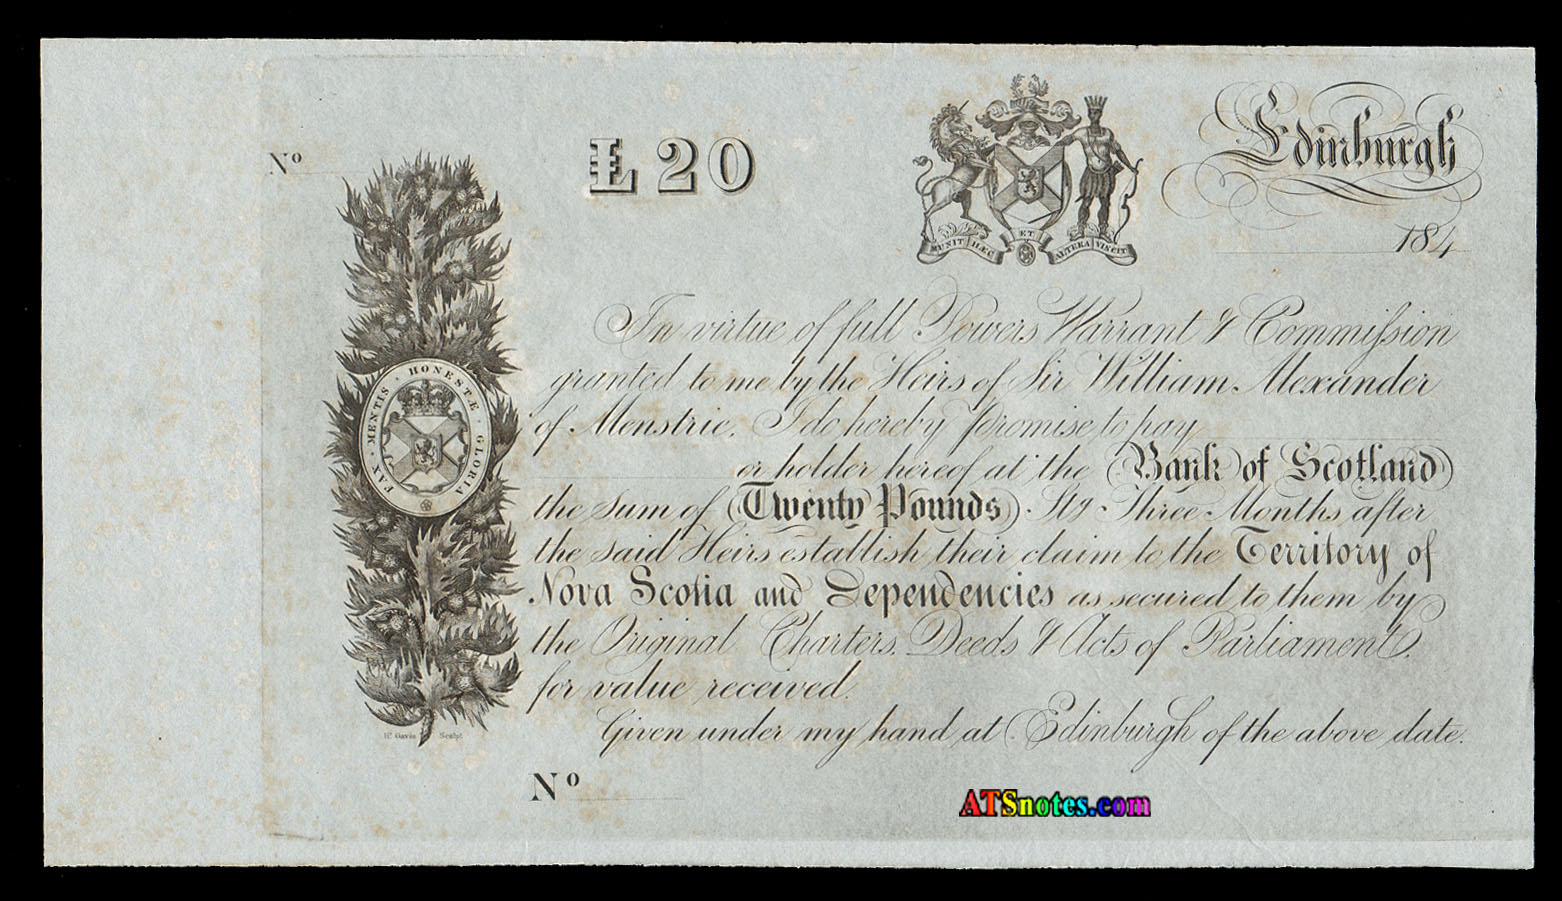 Nº
£20
Edinburgh
184
MUNIT HÆC ET ALTERA VINCIT
FAX · MENTIS · HONESTÆ · GLORIA
In virtue of full Powers Warrant & Commiſsion
granted to me by the Heirs of Sir William Alexander
of Menstrie, I do hereby promise to pay
or holder hereof at the (Bank of Scotland)
the sum of (Twenty Pounds) Stg Three Months after
the said Heirs establish their claim to the Territory of
Nova Scotia and Dependencies as secured to them by
the Original Charters, Deeds & Acts of Parliament,
for value received.
Given under my hand at Edinburgh of the above date.
Davis Sculpt
Nº
ATSnotes.com